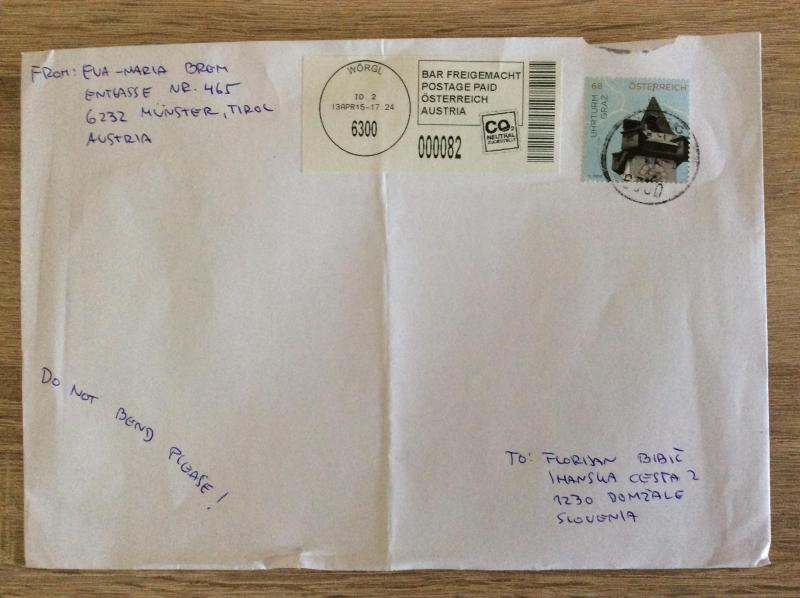 FROM: EVA-MARIA BREM
ENTGASSE NR. 465
6232 MÜNSTER, TIROL
AUSTRIA
WÖRGL
10 2
13APR15-17 24
6300
BAR FREIGEMACHT
POSTAGE PAID
ÖSTERREICH
AUSTRIA
000082
CO2
NEUTRAL
ZUGESTELLT
68 ÖSTERREICH
UHRTURM
GRAZ
DO NOT BEND PLEASE!
TO: FLORIJAN BIBIČ
IHANSKA CESTA 2
1230 DOMŽALE
SLOVENIA